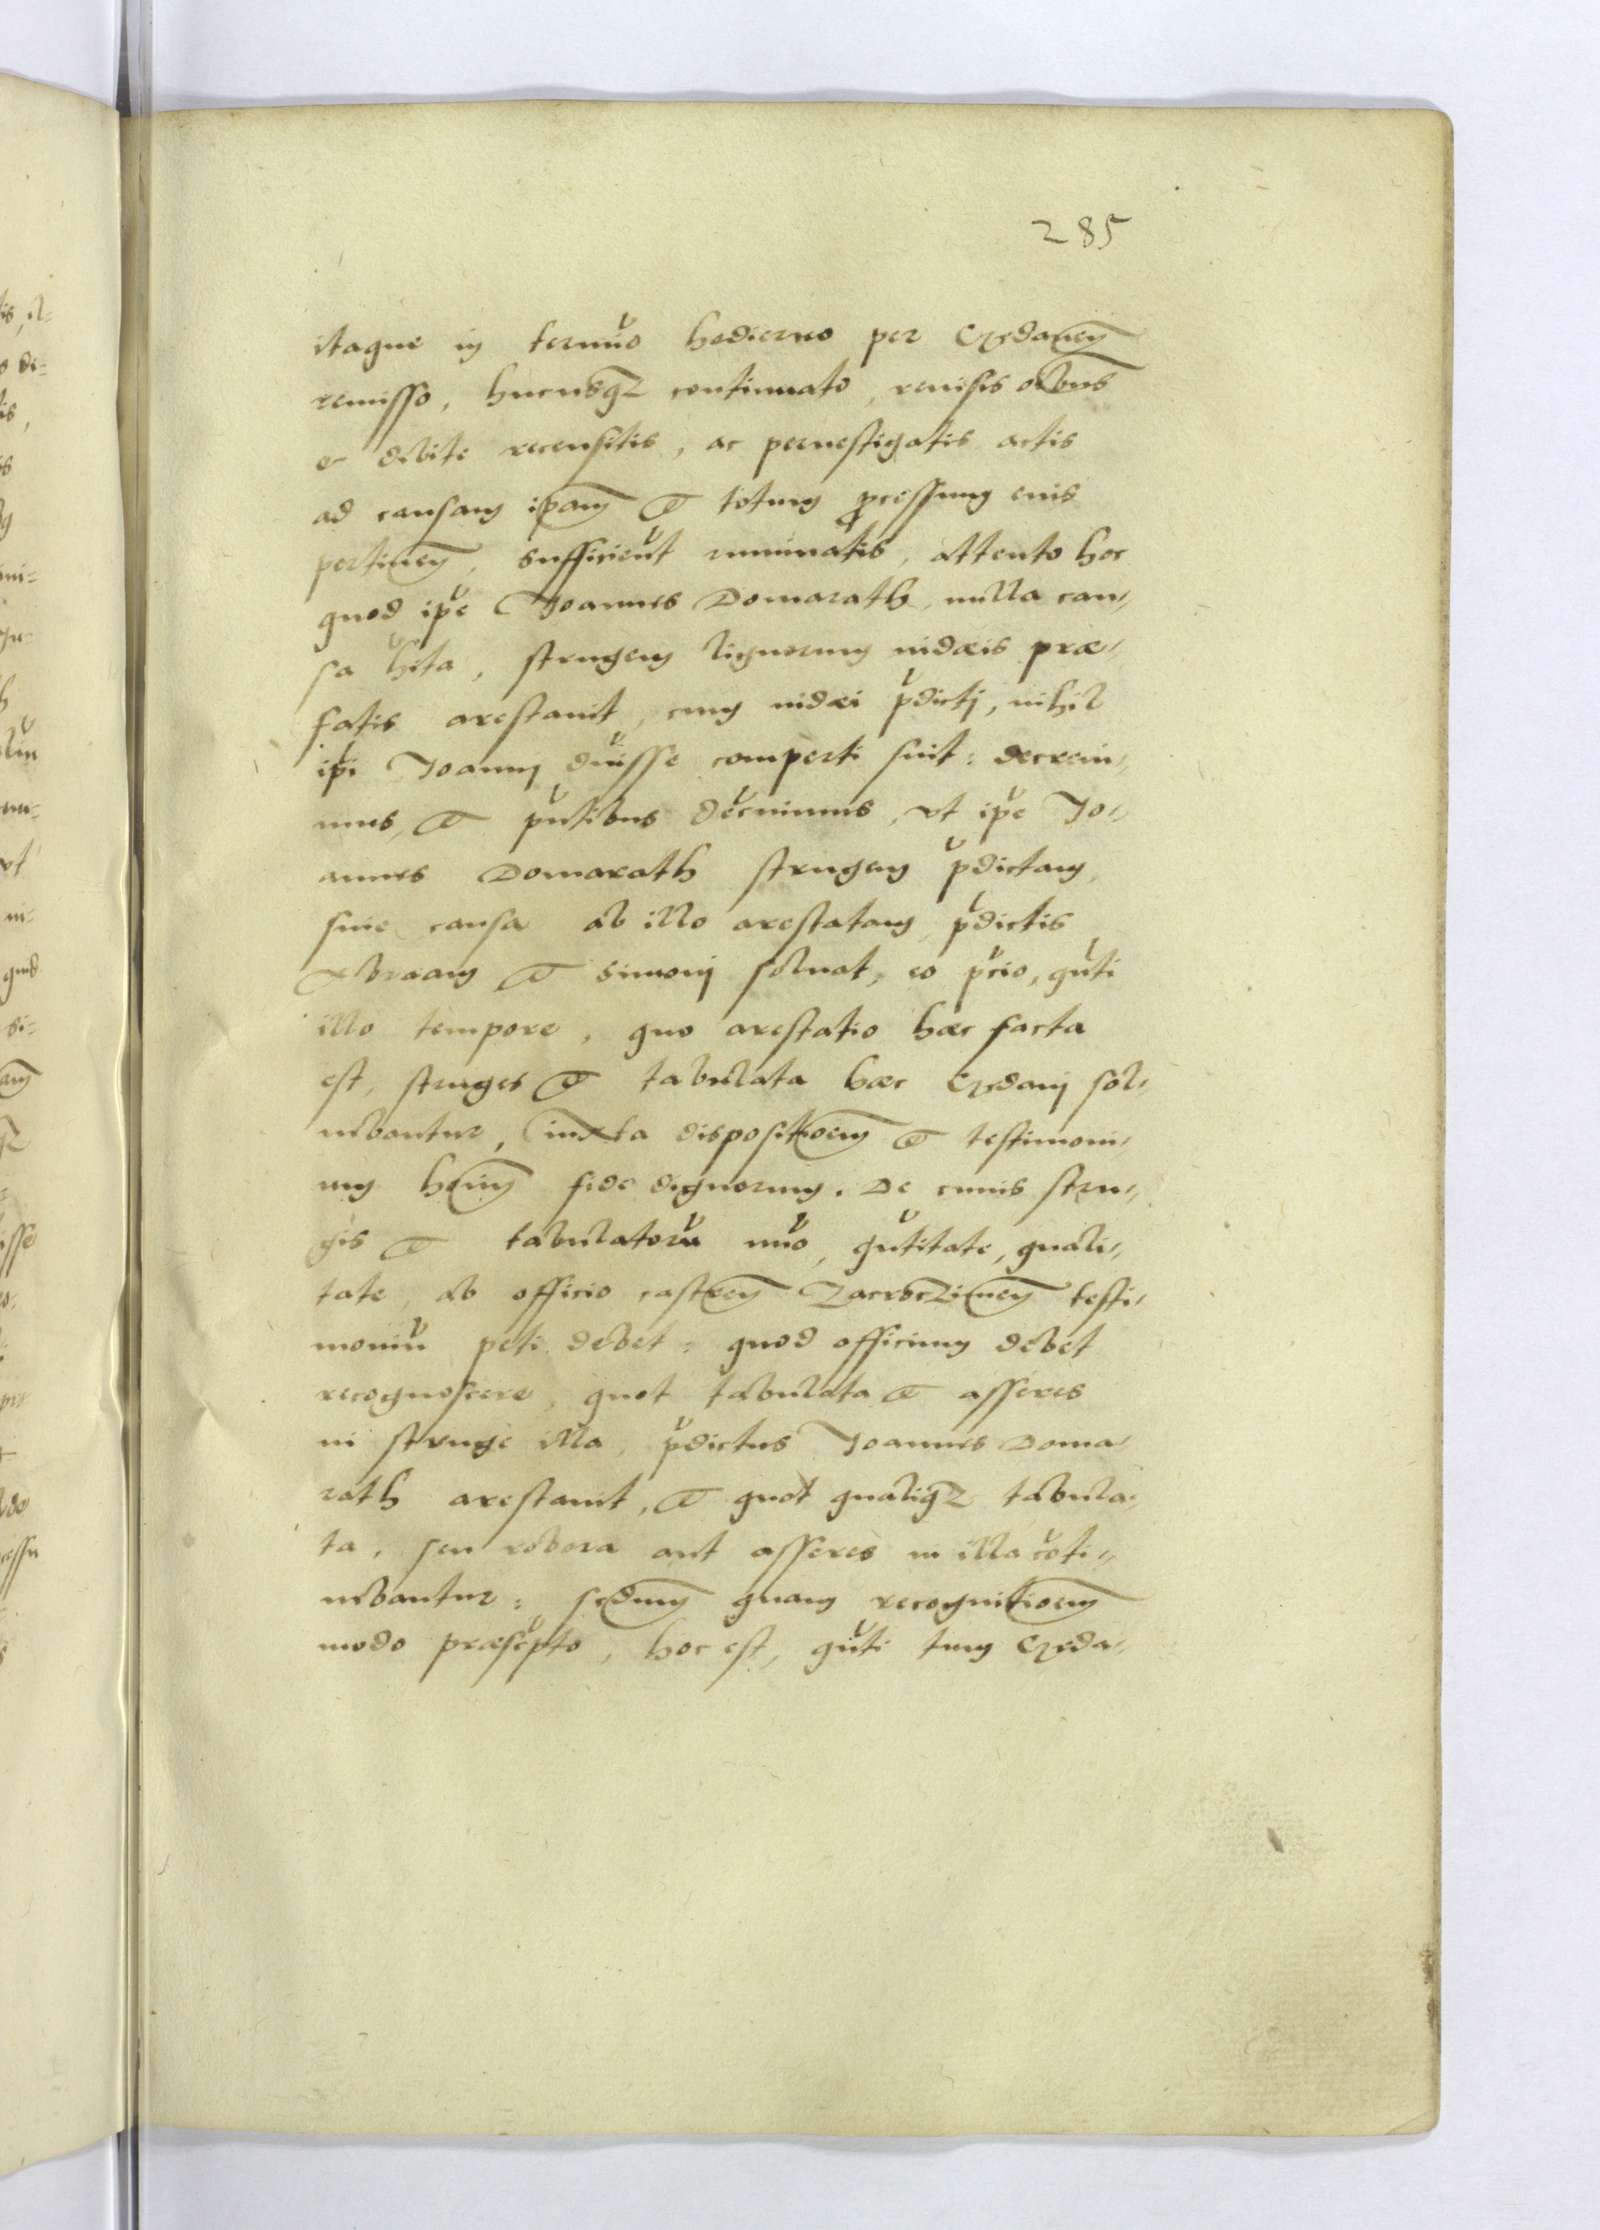 285
itaque in termio hodierno per Gedanen
remisso, hucusq3 continuato, revisis oībus
& debite recensitis, ac pervestigatis actis
ad causam ipam & totum pcessum eius
pertinen, sufficient ruminatis, attento hoc
quod ipe Joannes Domarath, nulla cau-
sa hita, strugem lignorum iudæis præ-
fatis arestauit, cum iudæi pdictj, nihil
ipi Joannj duisse comperti sint: decreui-
mus, & pntibus decnimus, vt ipe Jo-
annes Domarath strugem pdictam
sine causa ab illo arestatam pdictis
Abraam & Simonj soluat, eo pcio, quti
illo tempore, quo arestatio hæc facta
est, struges & tabulata hæc Gedanj sol-
uebantur, iuxta dispositioem & testimoni-
um hoium fide dignorum. De cuius stru-
gis & tabulatoru nuo, qutitate, quali-
tate, ab officio castren Zacroczimen testi-
moniu peti debet: quod officium debet
recognoscere, quot tabulata & asseres
in struge illa, pdictus Joannes Doma-
rath arestauit, & quot qualiq3 tabula-
ta, seu robora aut asseres in illa coti-
nebantur: scdum quam recognitioem
modo præscpto, hoc est, quti tum Geda-